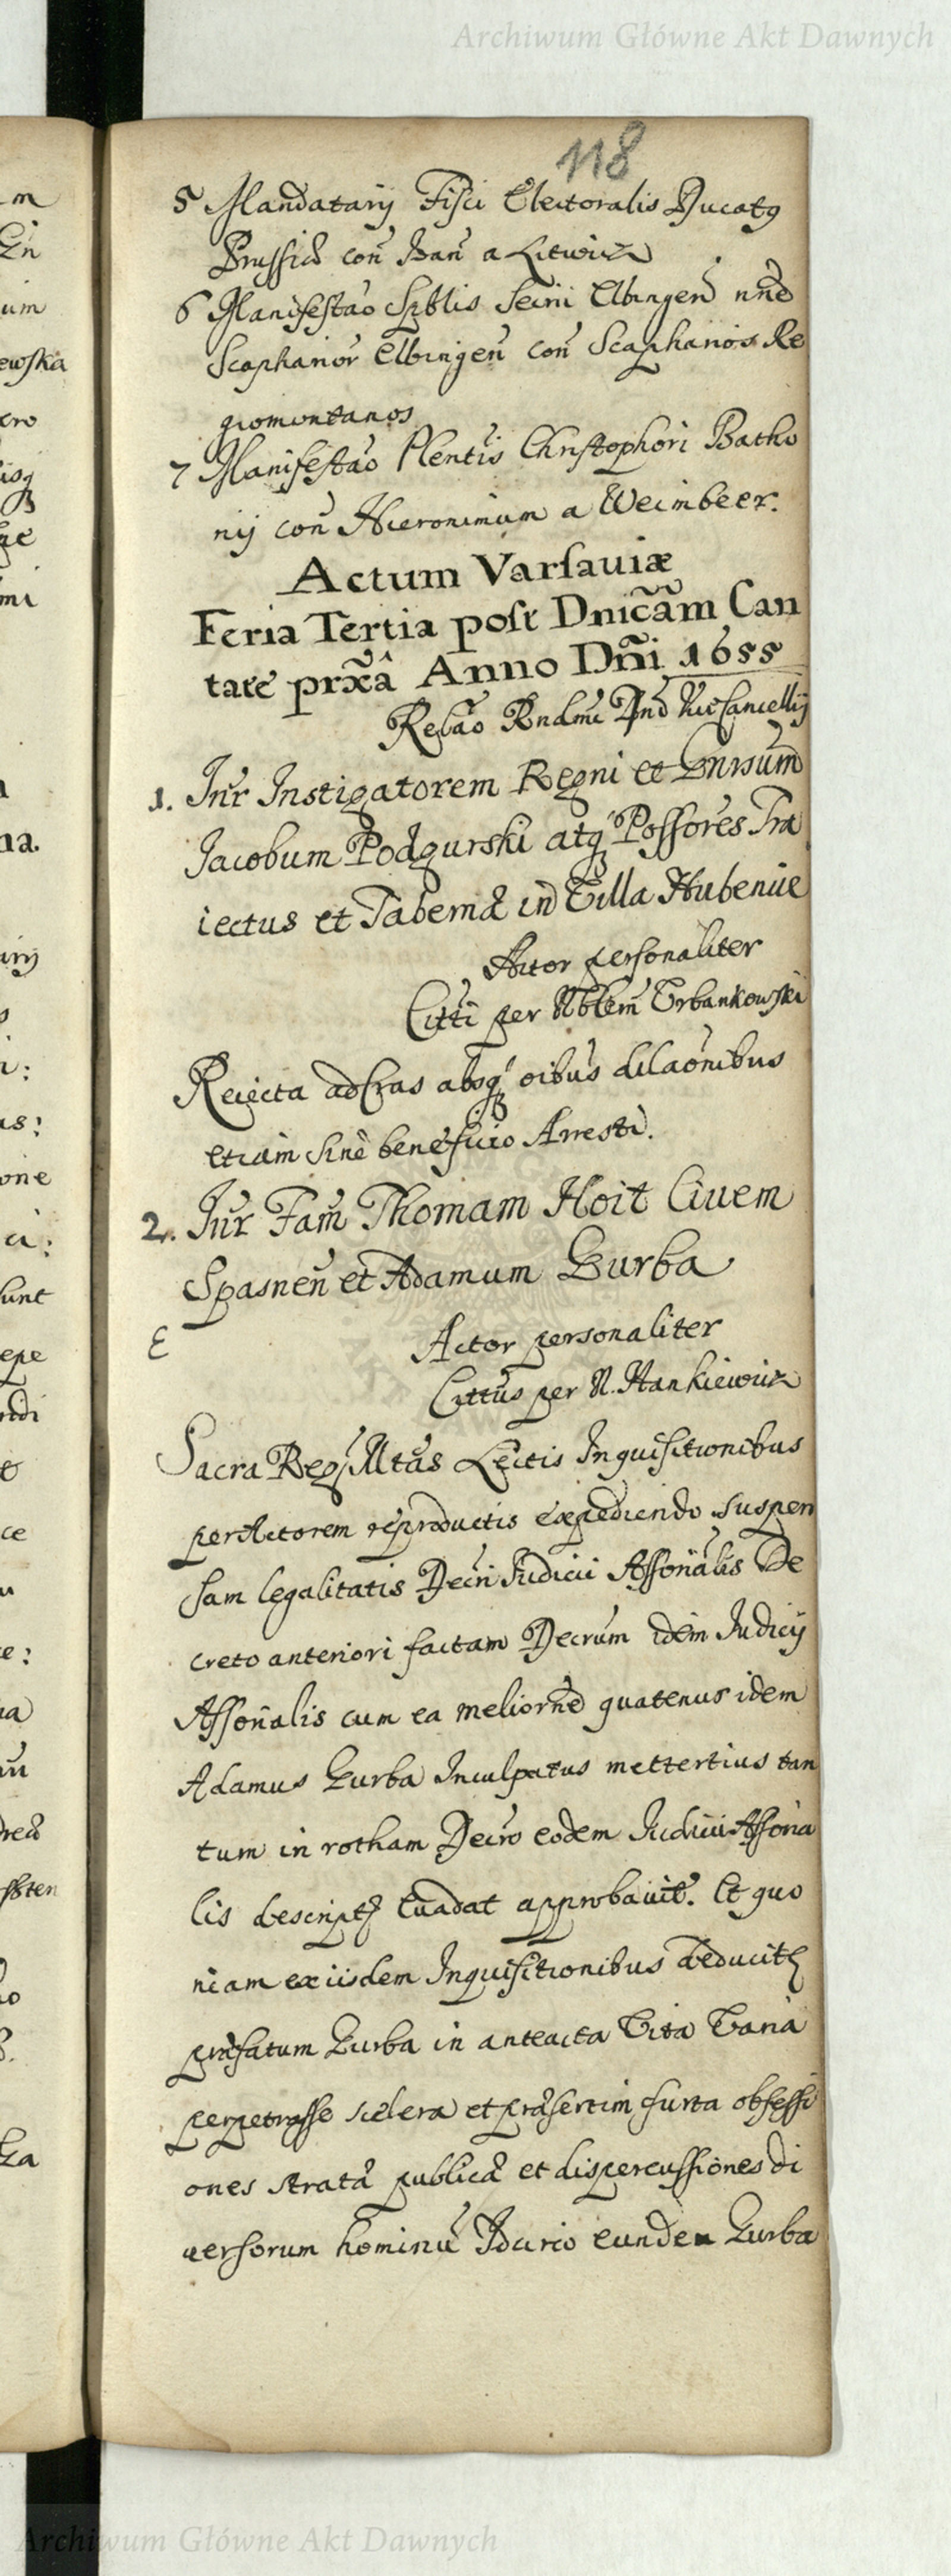 Archiwum Główne Akt Dawnych
118
5 Mandatarij Fisci Electoralis Ducatq
Prussiæ con Ban a Litwicz
6 Manifestao Spblis Secrii Elbingen nne
Scapharior Elbingen con Scapharios Re
giomontanos
7 Manifestao Plentis Christophori Batho
nij con Hieronimum a Weimbeer.
Actum Varsauiæ
Feria Tertia post Dnicam Can
tate prxa Anno Dñi 1655
Relao Rndmi Dni Vicecancellij
1. Inr Instigatorem Regni et
Jacobum Podgurski atq Possores Tra
iectus et Tabernæ in Villa Hubenice
Actor personaliter
Citti per Nblem Vrbankowski
Reiecta ad Cras absq oibus dilaonibus
etiam sine beneficio Arresti.
2. Inr Fam Thomam Hoit Ciuem
Spasnen et Adamum Burba
Actor personaliter
Cittus per N. Hankiewicz
Sacra Regi Mtas Lectis Inquisitionibus
per Actorem reproductis expediendo suspen
sam legalitatis Decri Iudicii Assorialis De
creto anteriori factam Decrum idem Iudicij
Assorialis cum ea meliorne quatenus idem
Adamus Burba Inculpatus mettertius tan
tum in rotham Decro eodem Iudicii Assoria
lis descript Euadat approbauit. Et quo
niam ex iisdem Inquisitionibus deducit
præfatum Burba in anteacta Vita Varia
perpetrasse scelera et præsertim furta obsessi
ones stratæ publicæ et dispercussiones di
uersorum hominu Idcirco eunden Burba
m
En
um
ewska
cro
mi
na.
one
sunt
epe
ce
Archiwum Główne Akt Dawnych